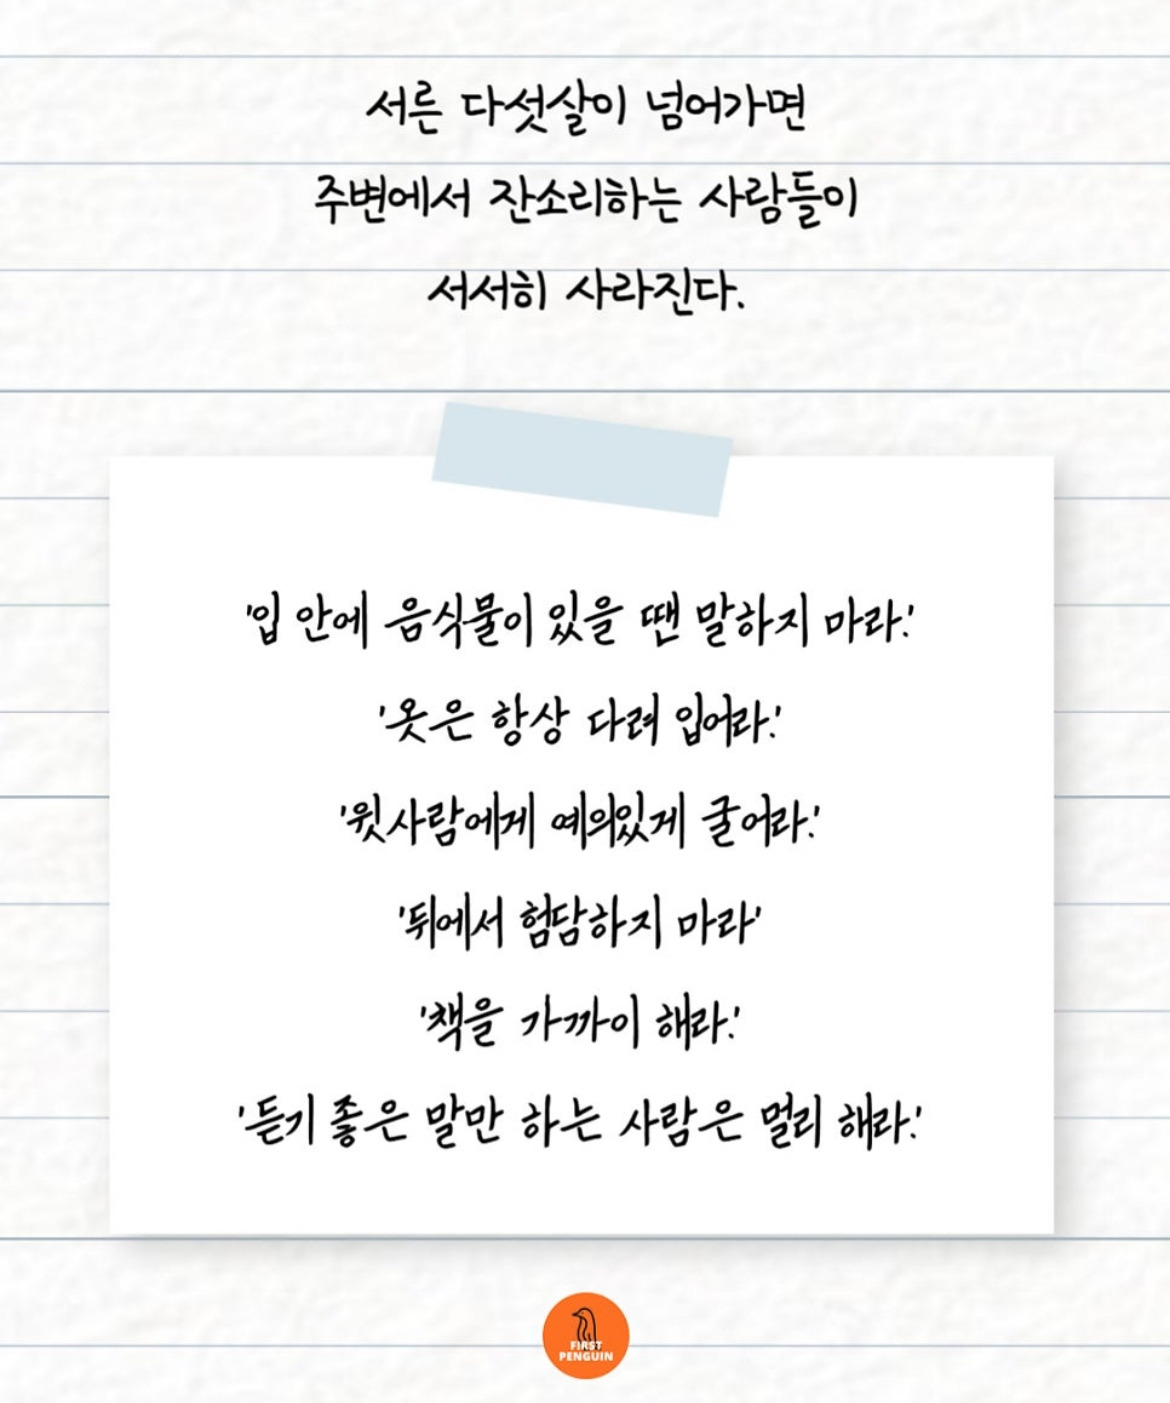 서른 다섯살이 넘어가면
주변에서 잔소리하는 사람들이
서서히 사라진다.
'입 안에 음식물이 있을 땐 말하지 마라.'
'옷은 항상 다려 입어라.'
'윗사람에게 예의있게 굴어라.'
'뒤에서 험담하지 마라'
'책을 가까이 해라.'
'듣기 좋은 말만 하는 사람은 멀리 해라.'
FIRST
PENGUIN